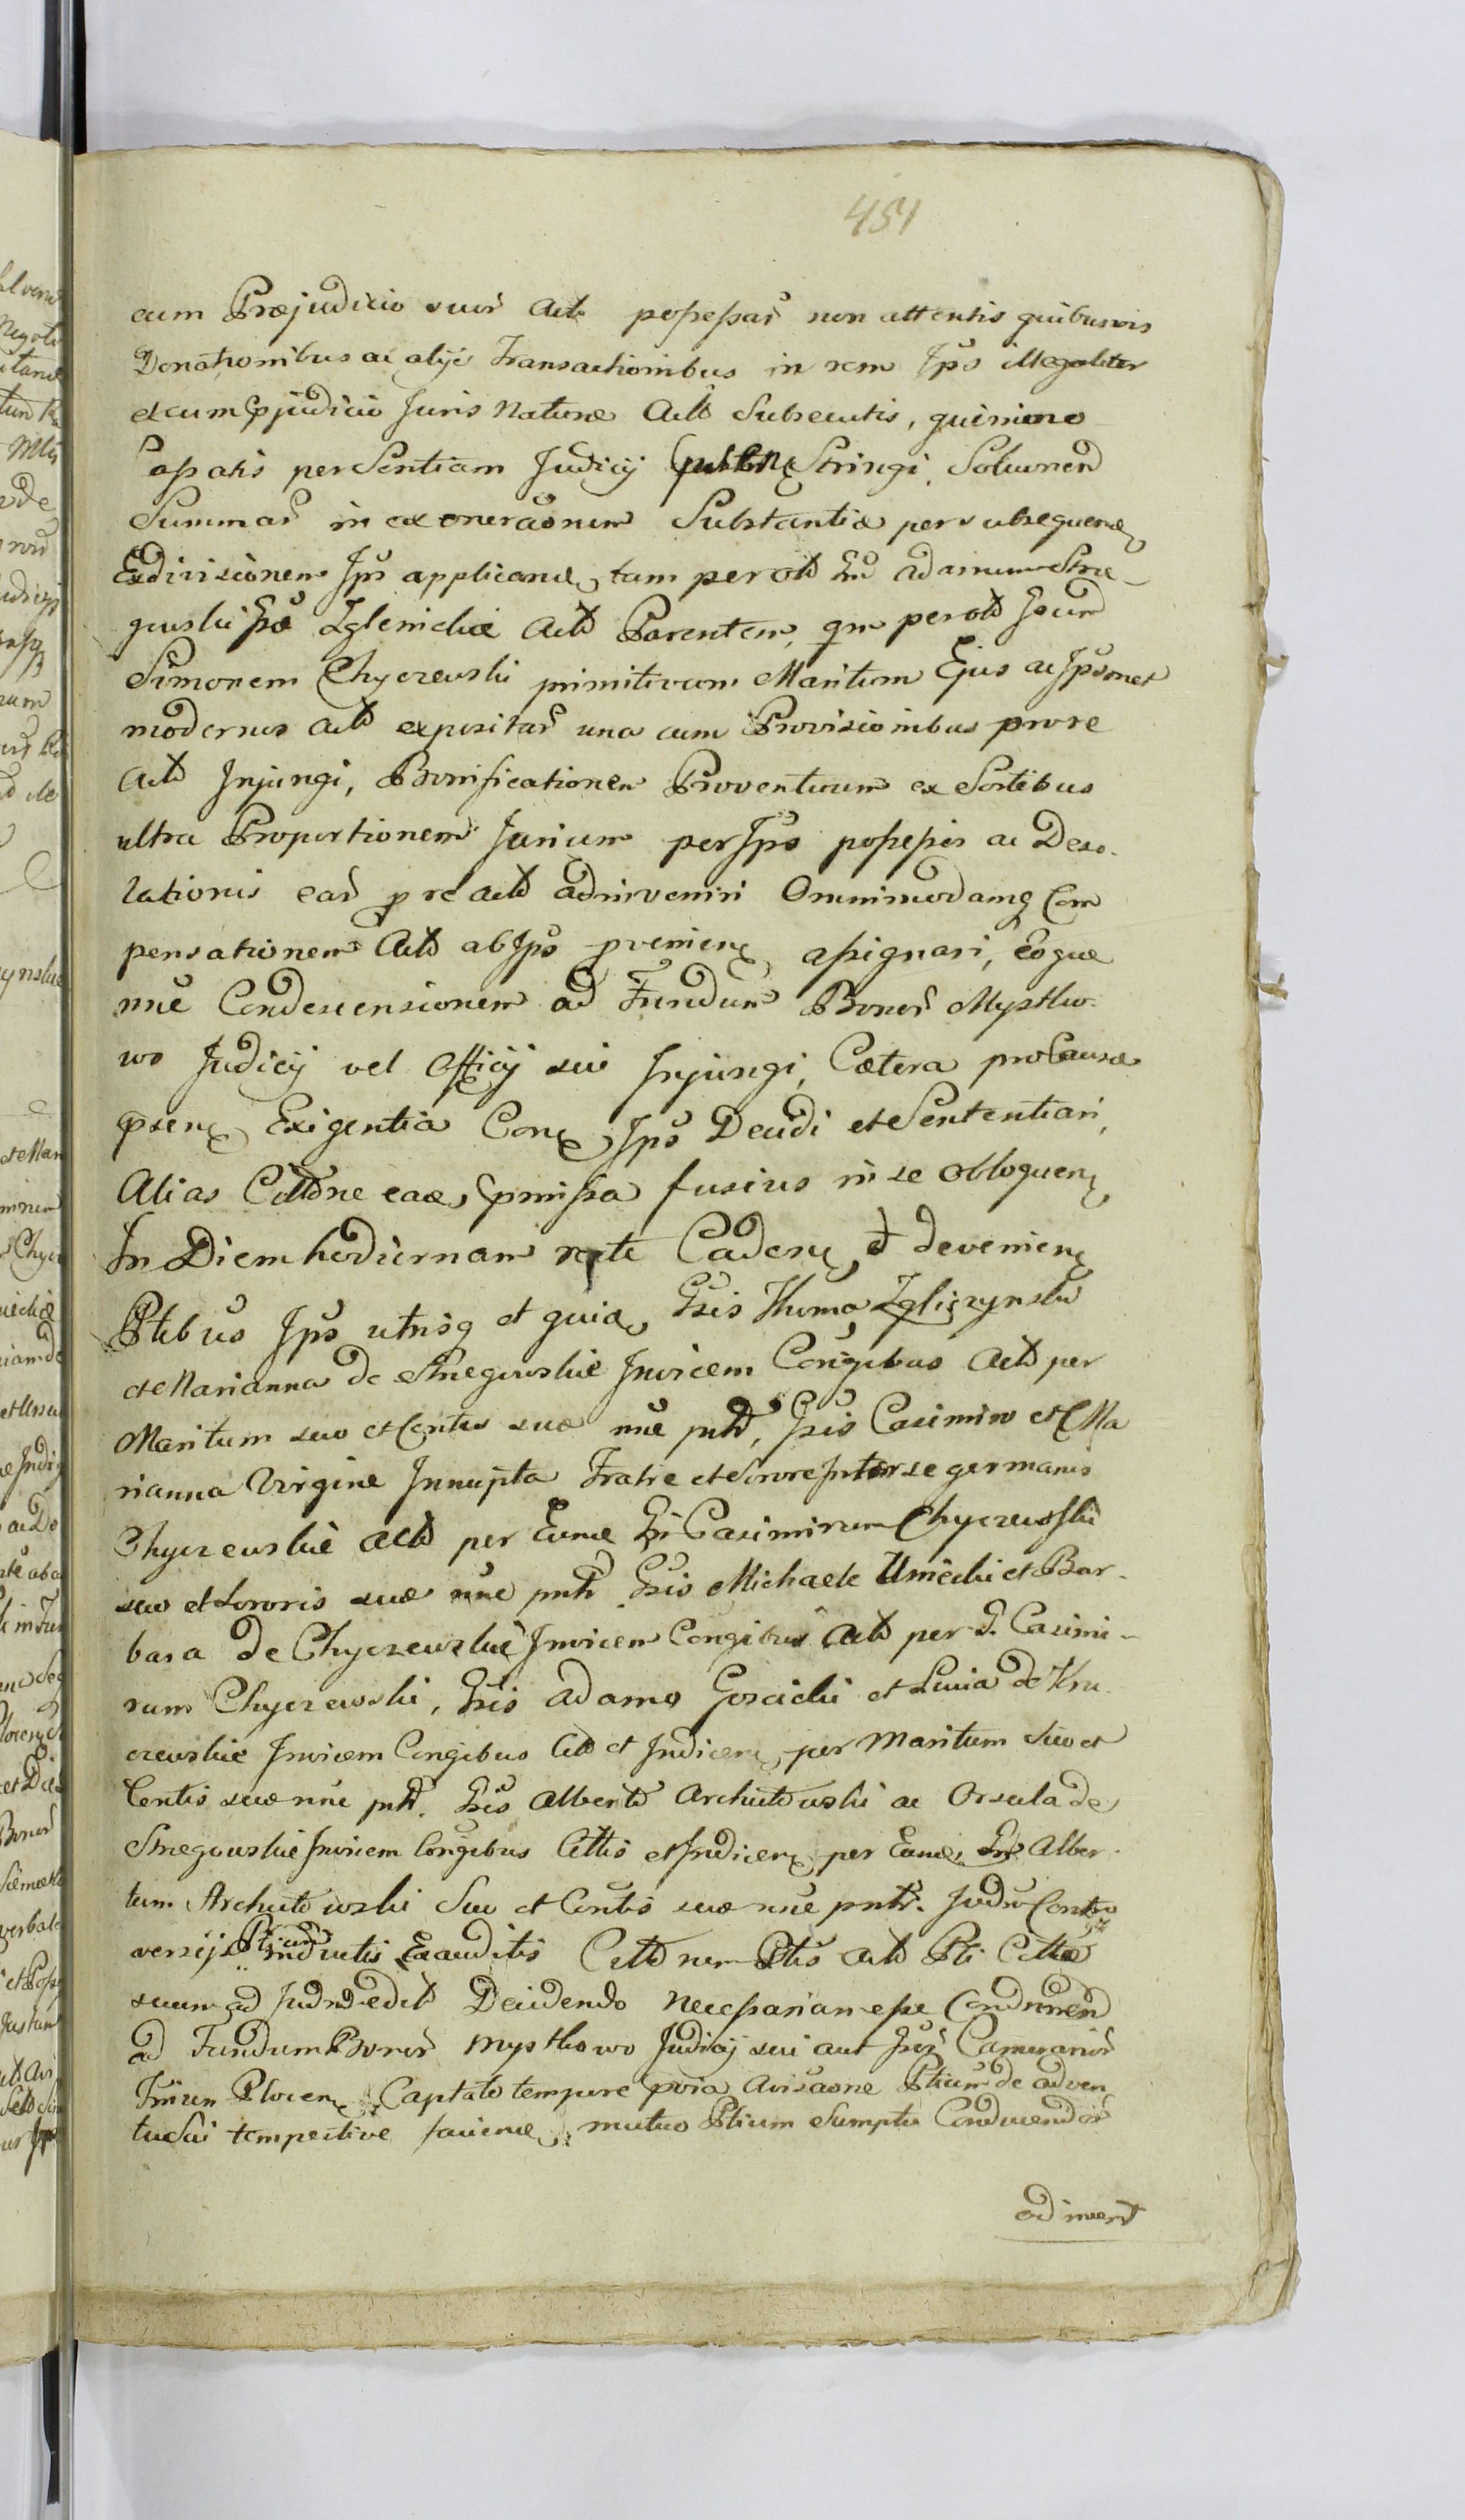 451
cum Præjudicio suor Actō possessar non attentis quibusvis
Donationibus ac alijs Transactionibus in rem Ips illegaliter
et cum pjudicio Juris Naturæ Actō Subsecutis, quinimo
Cassatis per Sentiam Judicij Stringi, Solvunend
Summar in exoneraonem Substantiæ per subsequene
Exdivisionem Ips applicane tam per olō Gn Adamum Strze-
gowski Gsæ Zglenickæ Actō Parentem, qm per olō Gsum
Simonem Chyczewski primitivum Maritum Ejus ac Ipsomet
modernos Actō expositar una cum Provisionibus pro re
Actō Injungi, Bonificationem Proventuum ex Sortibus
ultra Proportionem Jurium per Ips possessis ac Deso-
lationis ear p re actō adinveniri Omnimodamq Com
pensationem Actō ab Ips pveniene assignari, eoque
nnē Condescensionem ad Fundum Bonor Mystko-
wo Judicij vel Officij sui Injungi, Cætera pro Causæ
psene Exigentia Cone Ips Decidi et Sententiari,
Alias Cittōne eae pmissa fusius in se obloquene
In Diem hodiernam recte Cadene et deveniene
Ptibus Ips utrisq et quia Gsis Thoma Zgliczynski
et Marianna de Strzegowskie Invicem Congibus Actō per
Maritum suo et Contis suæ nne pntē, Gsis Casimiro et Ma
rianna Virgine Innupta Fratre et Sorore Inter se germanis
Chyczewskie Actō per Eunde Gn Casimirum Chyczewski
suo et Sororis suæ nne pnte Gsis Michaele Umiecki et Bar-
bara de Chyczewskie Invicem Congibus Actō per G. Casimi-
rum Chyczewski, Gsis Adamo Goscicki et Lucia de Kru
czewskie Invicem Congibus Cittō et Indicene per Maritum Suo et
Contis suæ nne pntē. Gsis Alberto Archutowski ac Orsula de
Strzegowskie Invicem Congibus Cittis et Indicene per Eunde Gn Alber-
tum Archutowski Suo et Contis suæ nne pnte. Judm Contro
versijs Ptium inductis Exauditis Cittō nem Ptis Actō Pti Cittæ
suum ad Judm edit Decidendo Necessariam esse Condnnem
ad Fundum Bonor Mystkowo Judicij sui aut Gsor Camerarior
Trium Plocene Captato tempore pvia Avisaone Ptium de adven
tu Sui tempestive faciene, mutuo Ptium Sumptu Conducendor
ad invent